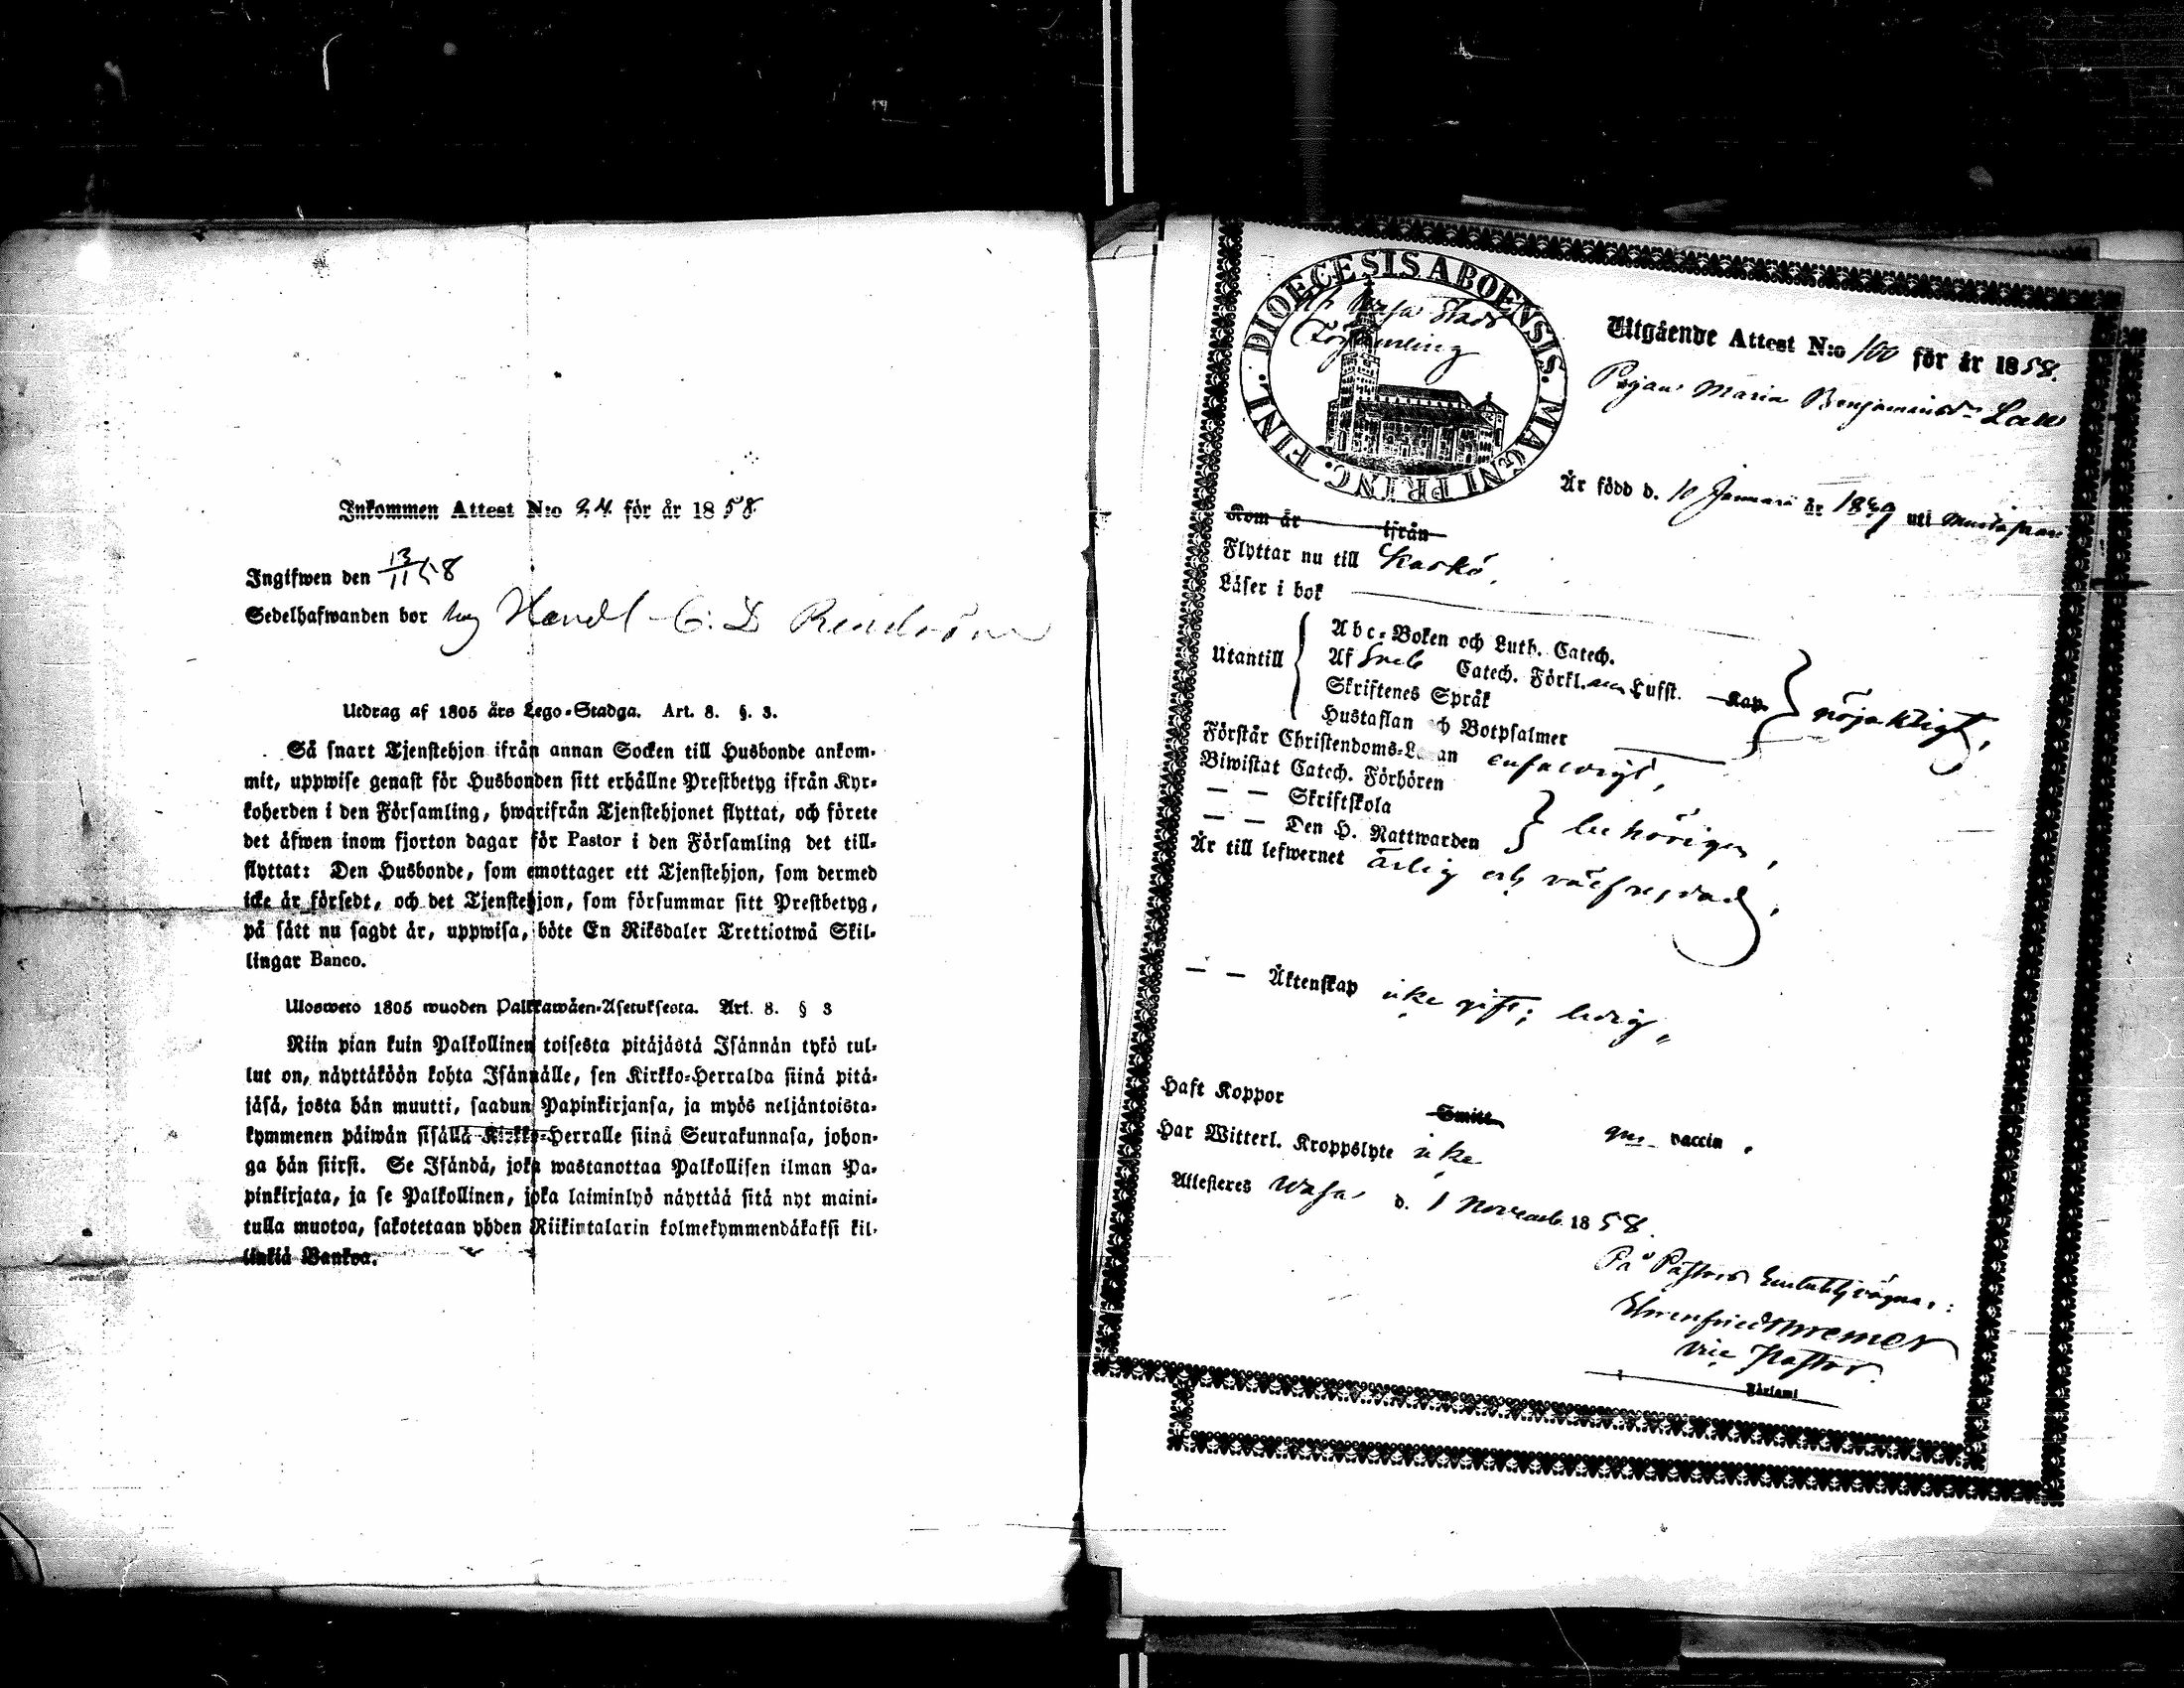 Inkommen Attest N:o 24 för år 1858
Ingifwen den 13/11 58
Sedelhafwanden bor hos Handl C: D
Utdrag af 1805 års Lego-Stadga. Art. 8. §. 3.
Så snart Tjenstehjon ifrån annan Socken till Husbonde ankom-
mit, uppwise genast för Husbonden sitt erhållne Prestbetyg ifrån Kyr-
koherden i den Församling, hwarifrån Tjenstehjonet flyttat, och förete
det äfwen inom fjorton dagar för Pastor i den Församling det till-
flyttat: Den Husbonde, som emottager ett Tjenstehjon, som dermed
icke är försedt, och det Tjenstehjon, som försummar sitt Prestbetyg,
på sätt nu sagdt är, uppwisa, böte En Riksdaler Trettiotwå Skil-
lingar Banco.
Ulosweto 1805 wuoden Palkkawäen-Asetuksesta. Art. 8. § 3
Niin pian kuin Palkollinen toisesta pitäjästä Isännän tykö tul-
lut on, näyttäköön kohta Isännälle, sen Kirkko-Herralda siinä pitä-
jäsä, josta hän muutti, saadun Papinkirjansa, ja myös neljäntoista-
kymmenen päiwän sisällä Kirkko-Herralle siinä Seurakunnasa, johon-
ga hän siirsi. Se Isändä, joka wastanottaa Palkollisen ilman Pa-
pinkirjata, ja se Palkollinen, joka laiminlyö näyttää sitä nyt maini-
tulla muotoa, sakotetaan yhden Riikintalarin kolmekymmendäkaksi kil-
linkiä Bankoa.
FINL. DIOECESIS ABOENSIS. MAGNI PRINC.
Wasa Stads
Församling
Utgående Attest N:o 100 för år 1858.
Pigan Maria Benjaminsdr
Är född d. 10 Januari år 1839 uti Mustasaari
Kom år ifrån
Flyttar nu till Kaskö.
Läser i bok
Utantill
Abc-Boken och Luth. Catech.
Af Sveb Catech. Förkl. Hufst. Kap.
Skriftenes Språk
Hustaflan och Botpsalmer
nöjaktigt,
Förstår Christendoms-Läran enfaldigt,
Biwistat Catech. Förhören
— — Skriftskola
— — Den H. Nattwarden
behörigen,
Är till lefwernet ärlig och välfrejdad,
— — Äktenskap icke gift; ledig
Haft Koppor Smitt gm vaccin.
Har Witterl. Kroppslyte icke
Attesteres Wasa d. 1 Novemb. 1858.
På Pastors Embetets vägnar:
vice Pastor.
i Församl